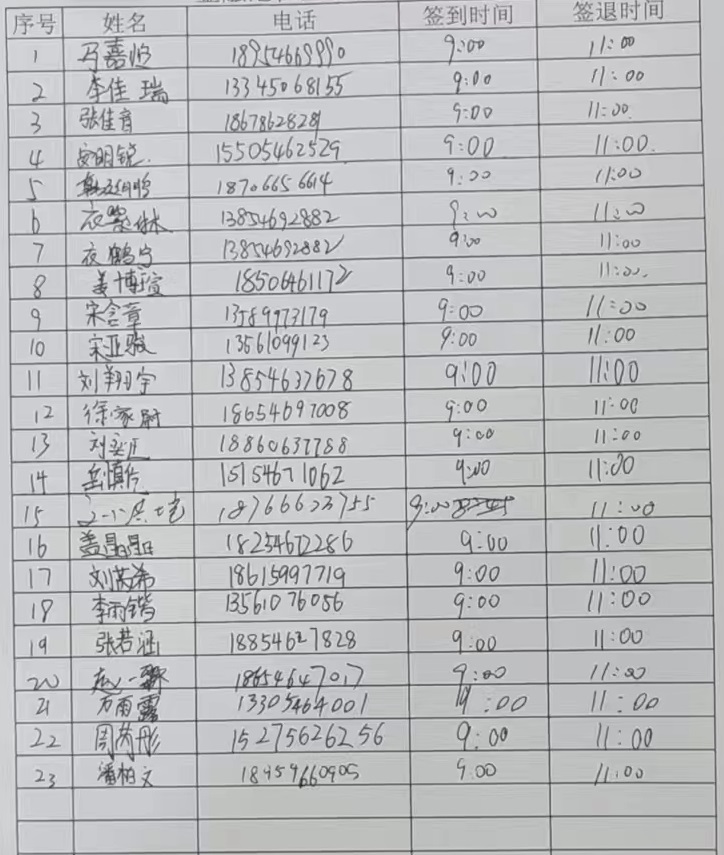 序号 姓名 电话 签到时间 签退时间
1 马嘉怡 18954669990 9:00 11:00
2 李佳瑞 13345068155 9:00 11:00
3 张佳音 1867862828 9:00 11:00
4 安明锐 15505462529 9:00 11:00
5 18706656614 9:00 11:00
6 13854692882 9:00 11:00
7 衣鹤宁 13854692882 9:00 11:00
8 姜博瑄 18506461172 9:00 11:00
9 宋含章 13589973179 9:00 11:00
10 宋亚骏 13561099123 9:00 11:00
11 刘翔宇 13854637678 9:00 11:00
12 徐家尉 18654697008 9:00 11:00
13 18860637788 9:00 11:00
14 岳慎 15154671062 9:00 11:00
15 18766623755 9:00 11:00
16 盖晶晶 18254672286 9:00 11:00
17 刘芮希 18615997719 9:00 11:00
18 李雨锴 13561076056 9:00 11:00
19 张若涵 18854627828 9:00 11:00
20 赵一 18654647017 9:00 11:00
21 方雨露 13305464001 9:00 11:00
22 周芮彤 15275626256 9:00 11:00
23 潘柏文 18459660905 9:00 11:00